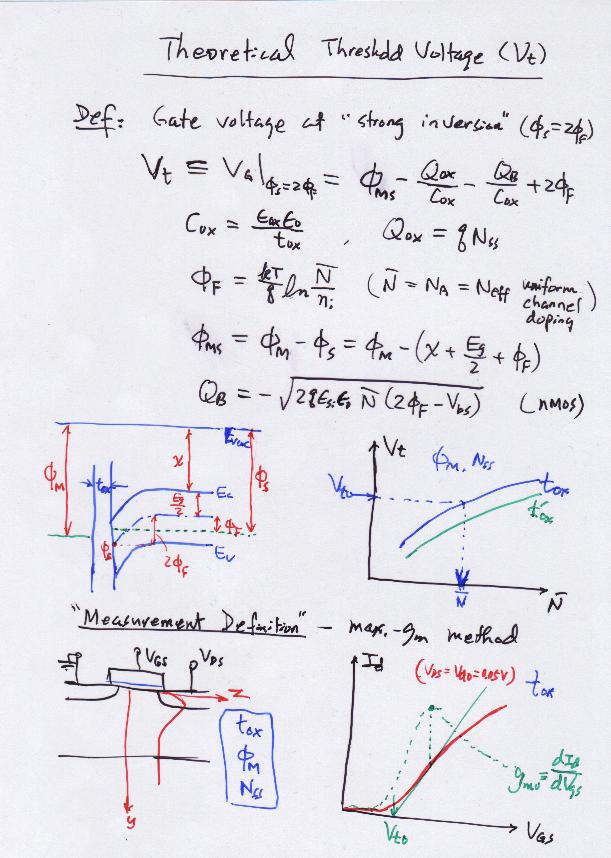 Theoretical Threshold Voltage (Vt)
Def: Gate voltage at "strong inversion" (ϕs=2ϕF)
Vt ≡ VG|ϕs=2ϕF = ϕMS − Qox/Cox − QB/Cox + 2ϕF
Cox = εoxε0/tox , Qox = qNss
ϕF = kT/q ln N̄/ni (N̄ = NA = Neff uniform channel doping)
ϕMS = ϕM − ϕS = ϕM − (χ + Eg/2 + ϕF)
QB = −√2qεsiε0 N̄ (2ϕF − Vbs) (nMOS)
Evac
ϕM
tox
χ
ϕS
Ec
Eg/2
ϕF
ϕs
2ϕF
Ev
Vt
ϕM, Nss
Vto
tox
t'ox
N̄
N̄
"Measurement Definition" – max.-gm method
VGS
VDS
z
y
tox
ϕM
Nss
Id
(VDS = Vdo = 0.05V)
tox
gmo = dId/dVgs
Vto
VGS